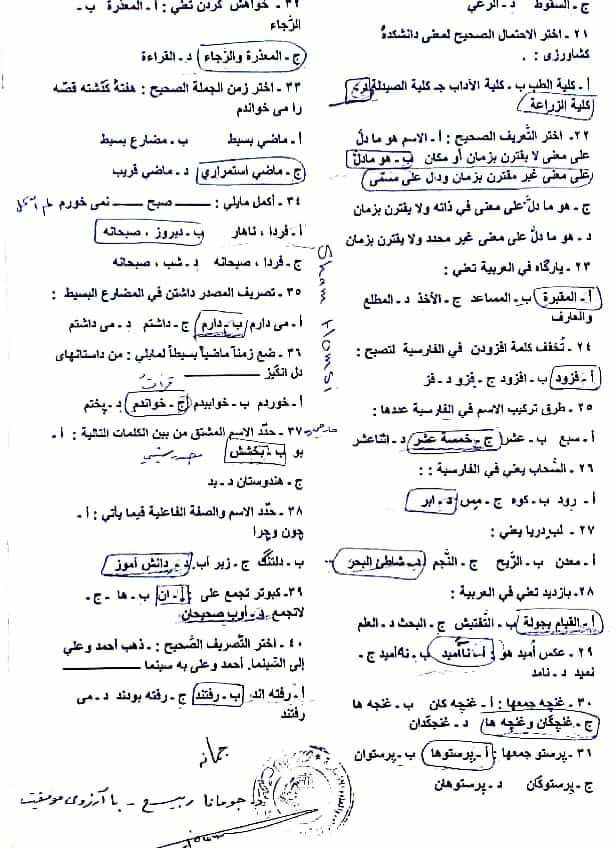 ج ـ السقوط د ـ الرعي
٢١ ـ اختر الاحتمال الصحيح لمعنى دانشكدهٔ
كشاورزى :
أ ـ كلية الطب ب ـ كلية الآداب جـ كلية الصيدلة
كلية الزراعة
٢٢ ـ اختر التّعريف الصحيح : أ ـ الاسم هو ما دلّ
على معنى لا يقترن بزمان أو مكان ب ـ هو مادلّ
على معنى غير مقترن بزمان ودل على مسمّى
ج ـ هو ما دلّ على معنى في ذاته ولا يقترن بزمان
د ـ هو ما دلّ على معنى غير محدد ولا يقترن بزمان
٢٣ ـ بارگاه في العربية تعني :
أ ـ المقبرة ب ـ المساعد ج ـ الأخذ د ـ المطلع
والعارف
٢٤ ـ تُخفف كلمة افزودن في الفارسية لتصبح :
أ ـ فزود ب ـ افزود ج ـ فزو د ـ فز
٢٥ ـ طرق تركيب الاسم في الفارسية عددها :
أ ـ سبع ب ـ عشر ج ـ خمسة عشر د ـ اثناعشر
٢٦ ـ السَّحاب يعني في الفارسية : :
أ ـ رود ب ـ كوه ج ـ مِس د ـ ابر
٢٧ ـ لب دريا يعني :
أ ـ معدن ب ـ الرّيح ج ـ النّجم د ـ شاطئ البحر
٢٨ ـ بازديد تعني في العربية :
أ ـ القيام بجولة ب ـ التّفتيش ج ـ البحث د ـ العلم
٢٩ ـ عكس أميد هو : أ ـ ناأميد ب ـ نه أميد ج ـ
نميد د ـ نامد
٣٠ ـ غنچه جمعها : أ ـ غنچه كان ب ـ غنچه ها
ج ـ غنچگان وغنچه ها د ـ غنجگدان
٣١ ـ پرستو جمعها : أ ـ پرستوها ب ـ پرستوان
ج ـ پرستوگان د ـ پرستوهان
٣٢ ـ خواهش كردن تعني : أ ـ المعذرة ب ـ
الرّجاء
ج ـ المعذرة والرّجاء د ـ القراءة
٣٣ ـ اختر زمن الجملة الصحيح : هفتهٔ گذشته قصّه
را مى خواندم
أ ـ ماضي بسيط ب ـ مضارع بسيط
ج ـ ماضي استمراري د ـ ماضي قريب
٣٤ ـ أكمل مايلي : ــــــ صبح ــــــ نمى خورم
أ ـ فردا ، ناهار ب ـ ديروز ، صبحانه
ج ـ فردا ، صبحانه د ـ شب ، صبحانه
٣٥ ـ تصريف المصدر داشتن في المضارع البسيط :
أ ـ مى دارم ب ـ دارم ج ـ داشتم د ـ مى داشتم
٣٦ ـ ضع زمناً ماضياً بسيطاً لمايلي : من داستانهاى
دل انگيز ــــــــــــ
أ ـ خوردم ب ـ خوابيدم ج ـ خواندم د ـ پختم
٣٧ ـ حدّد الاسم المشتق من بين الكلمات التالية : أ ـ
بو ب ـ بخشش
ج ـ هندوستان د ـ بد
٣٨ ـ حدّد الاسم والصفة الفاعلية فيما يأتي : أ ـ
چون وچرا
ب ـ دلتنگ ج ـ زير آب د ـ دانش آموز
٣٩ ـ كبوتر تجمع على : أ ـ ان ب ـ ها ج ـ
لاتجمع د ـ أوب صحيحان
٤٠ ـ اختر التّصريف الصّحيح : ذهب أحمد وعلي
إلى السّينما. أحمد وعلى به سينما ــــــــــــ
أ ـ رفته اند ب ـ رفتند ج ـ رفته بودند د ـ مى
رفتند
Sham Homsi
جمانه
د. جومانا ربيع ـ با آرزوى موفقيت